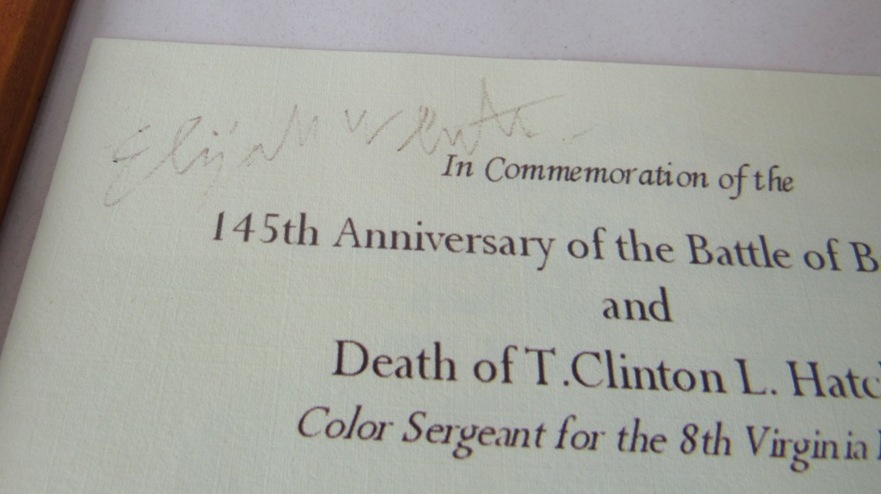 Elijah V White
In Commemoration of the
145th Anniversary of the Battle of B
and
Death of T.Clinton L. Hatc
Color Sergeant for the 8th Virginia